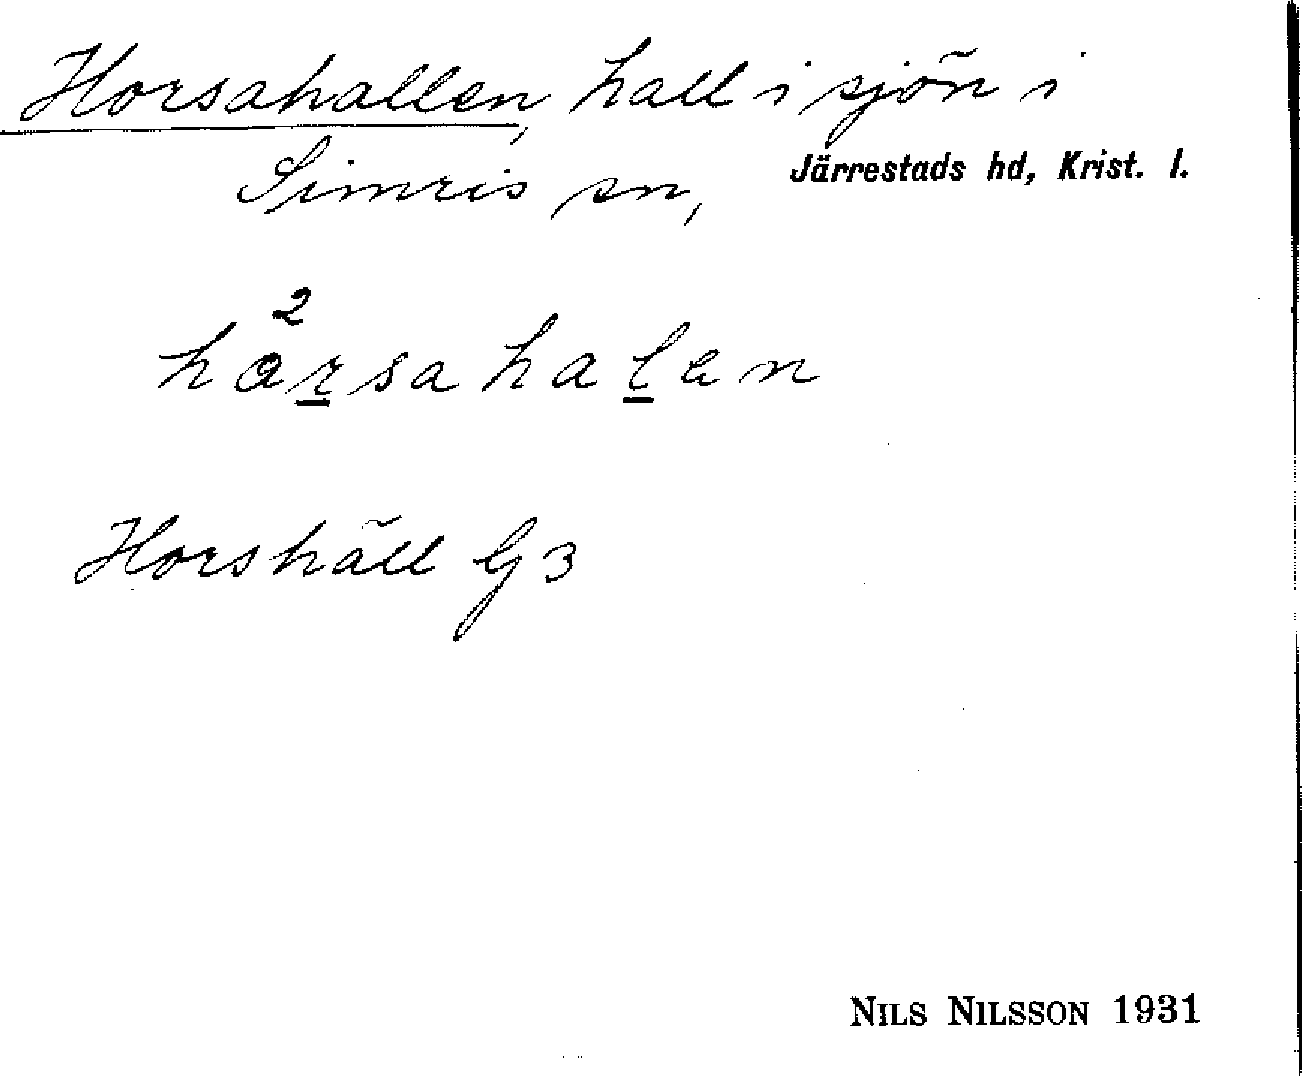 Horsahallen, hall i sjön i
Simris sn, Järrestads hd, Krist. l.
2
hårsahalen
Horshäll G3
NILS NILSSON 1931